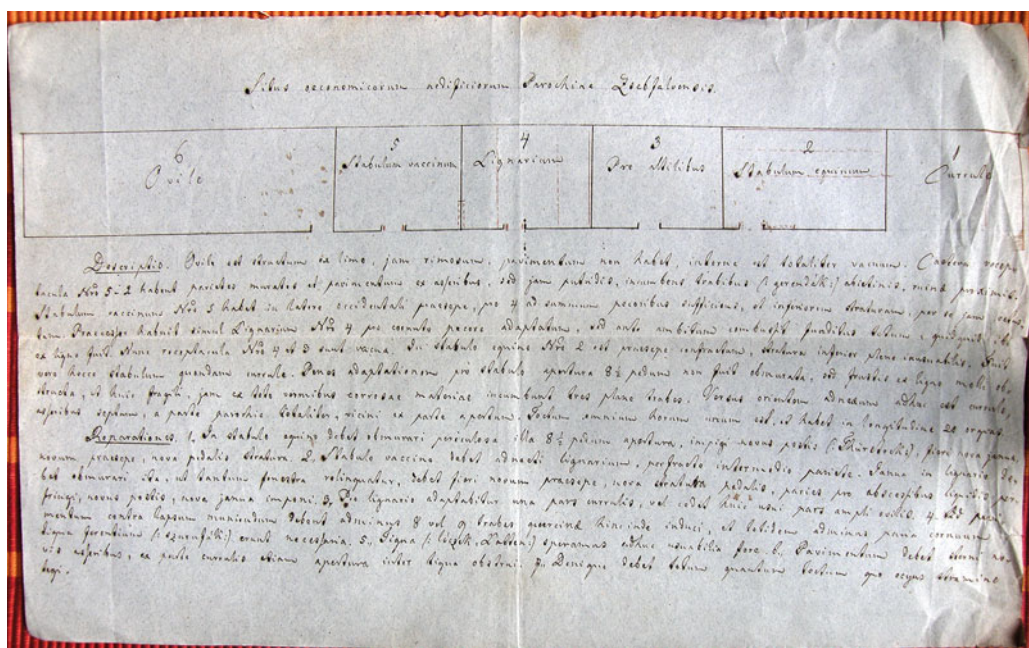 Situs oeconomicorum aedificiorum Parochiae Zsebfalvensis.
6
Ovile
5
Stabulum vaccinum
4
Lignarium
3
Pro Altilibus
2
Stabulum equinum
1
Currale
Descriptio. Ovile est structum ex limo, jam rimosum, pavimentum non habet, interne est totaliter vacuum. Caetera recep-
tacula Nris 5-2 habent parietes muratos et pavimentum ex asseribus, sed jam putridis, incumbens trabibus (: gerendák :) abietinis,
Stabulum vaccinum Nro 5 habet in latere occidentali praesepe, pro 4 ad summum pecoribus sufficiens, et inferiorem straturam, per se jam
tum. Praesepe habuit simul Lignarium Nro 4 pro cornuto pecore adaptatum, sed ante ambitum combussit funditus totum, quidquid
ex ligno fuit. Nunc receptacula Nris 4 et 3 sunt vacua. In stabulo equino Nro 2 est praesepe confractum, stratura inferior plane inusuabilis. Fuit
vero hocce stabulum quondam currale. Penes adaptationem pro stabulo, apertura 8½ pedum non fuit obmurata, sed frustis ex ligno molli ob-
structa, et huic fragili, jam ex toto vermibus corrosae materiae incumbunt tres plane trabes. Versus orientem adnexum adhuc est currale,
asseribus septum, a parte parochiae totaliter, vicini ex parte apertum. Tectum omnium horum unum est, et habet in longitudine 20 orgias.
Reparationes. 1. In stabulo equino debet obmurari periculosa illa 8½ pedum apertura, impingi novus postis fieri nova janua,
novum praesepe, nova pedalis stratura. 2. Stabulo vaccino debet adnecti lignarium, perfracto intermedio pariete. Janua in lignario de-
bet obmurari ita, ut tantum fenestra relinquatur, debet fieri novum praesepe, nova stratura pedalis, paries pro
fringi, novus postis, nova janua imponi. 3. Pro lignario adaptabitur una pars curralis, vel cedet huic usui pars ampli ovilis. 4. Ad pavi-
mentum contra lapsum muniendum debent adminus 8 vel 9 trabes quercinae hincinde induci, et totidem adminus paria cornuum
tigna ferentium erunt necessaria. 5. Tigna (: léczek, Latten :) speramus adhuc usuabilia fore. 6. Pavimentum debet sterni no-
vis asseribus, ex parte curralis etiam apertura inter tigna obstrui. 7. Denique debet totum quantum tectum quo ocyus stramine
tegi.